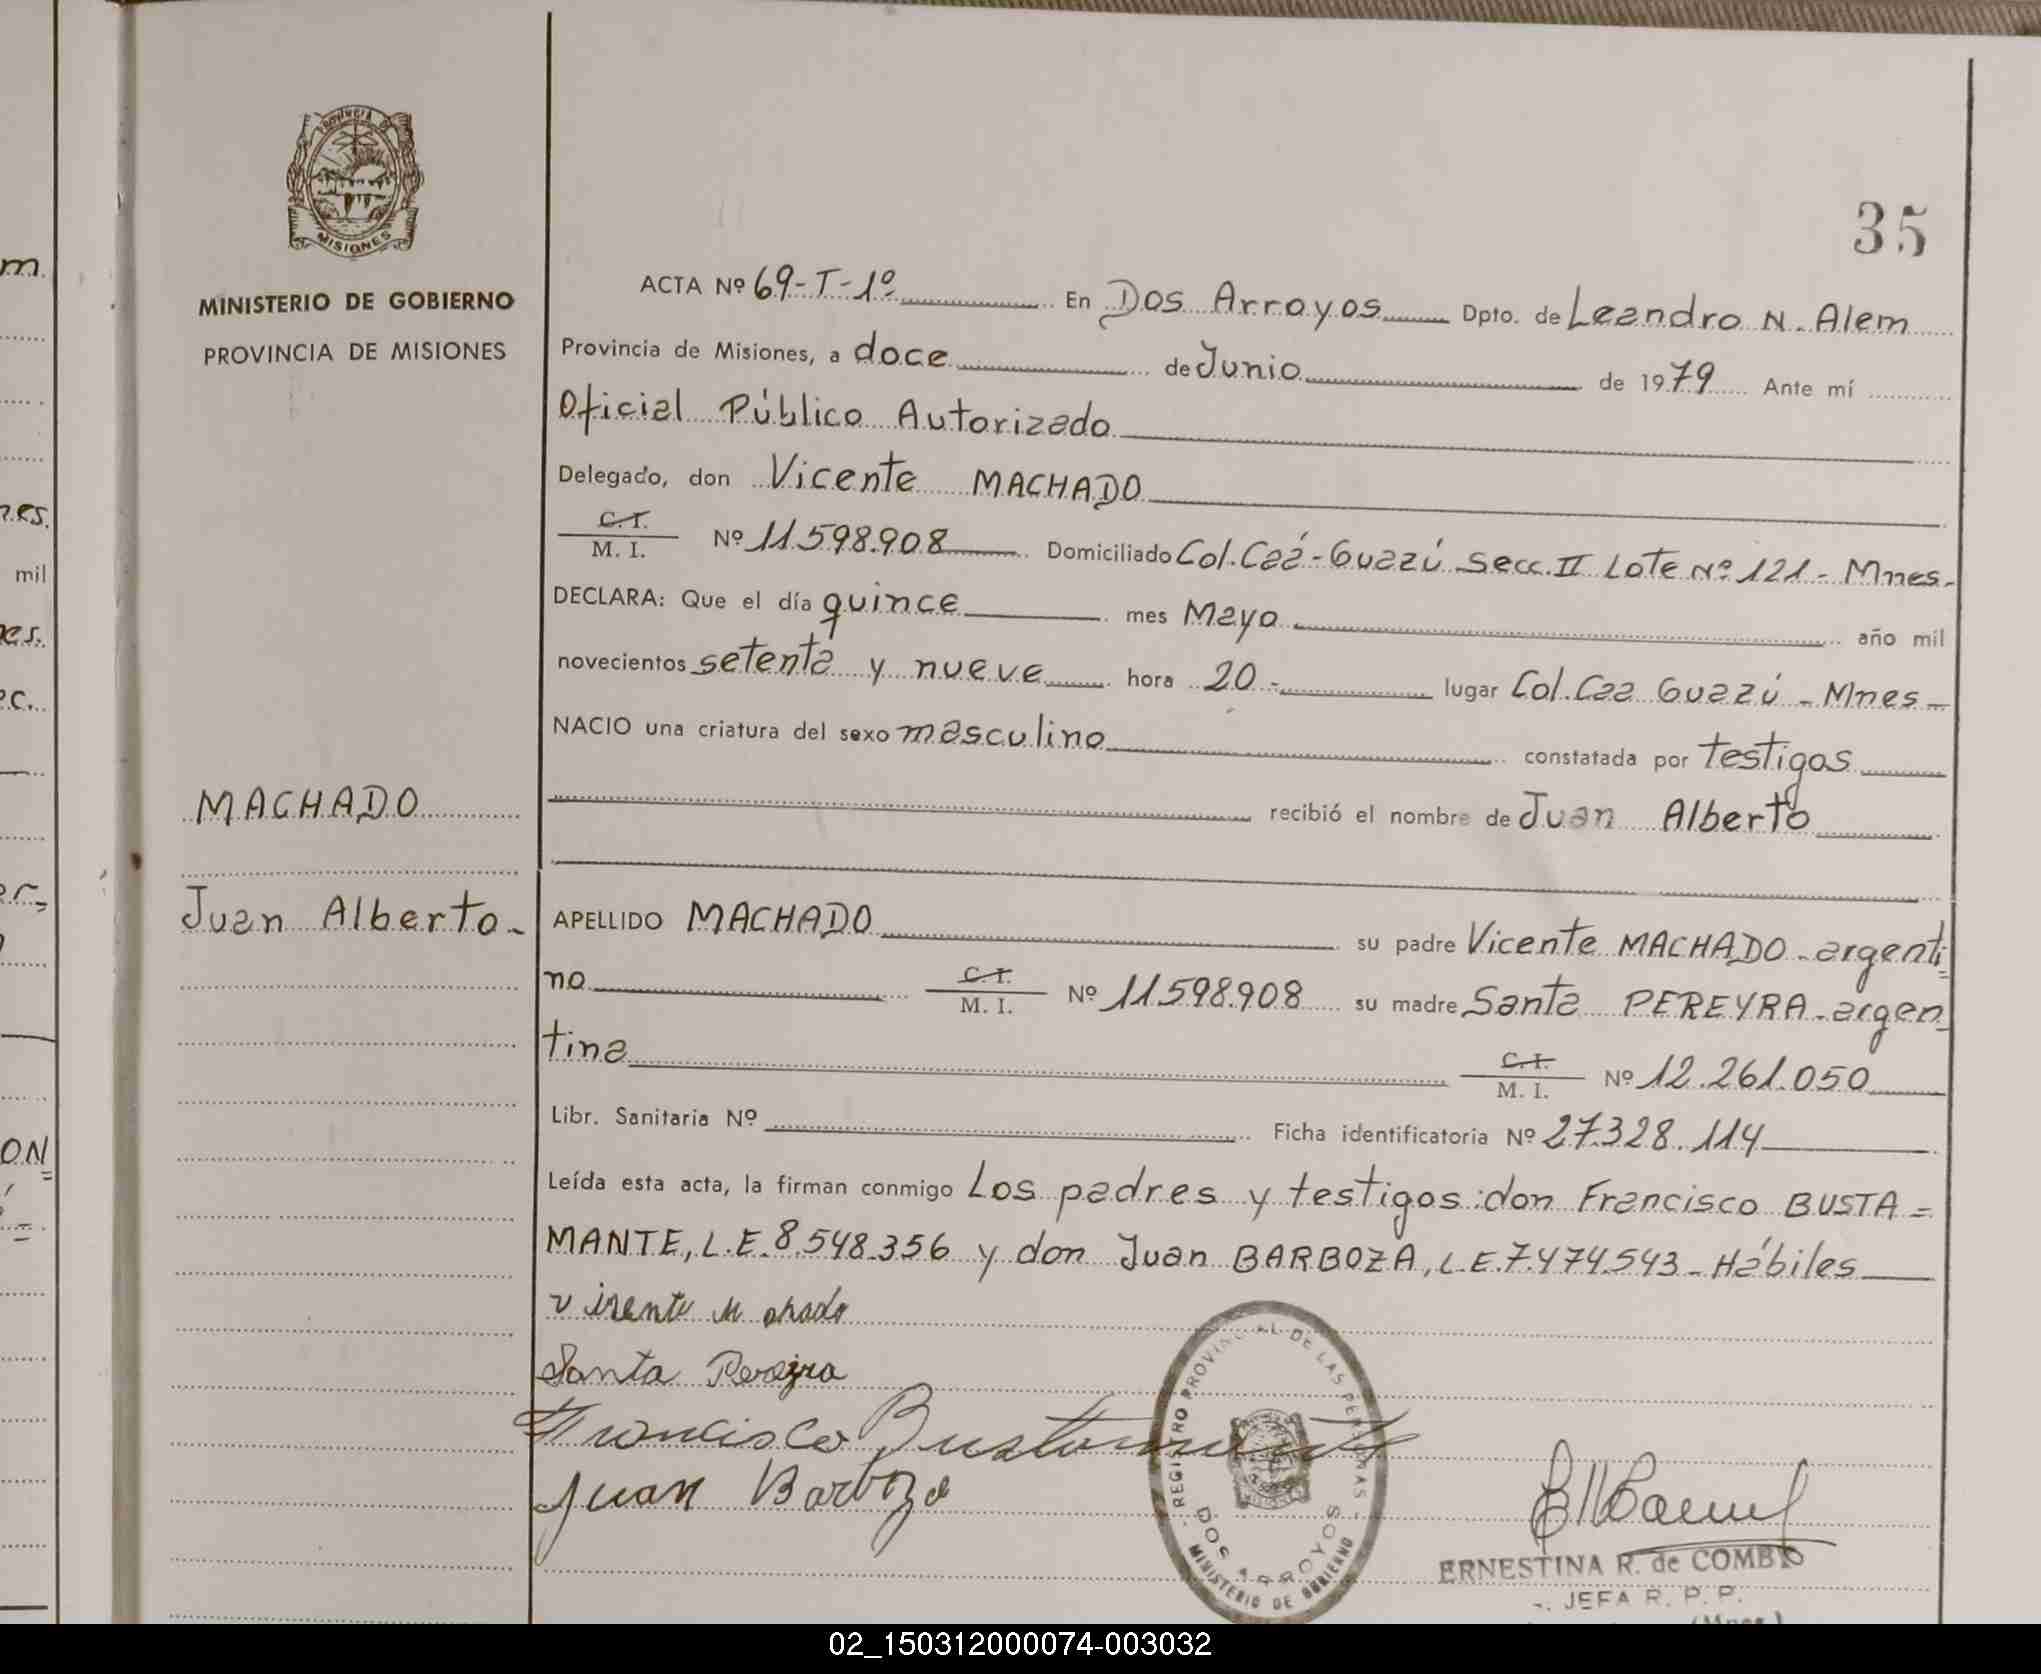 PROVINCIA DE
MISIONES
MINISTERIO DE GOBIERNO
PROVINCIA DE MISIONES
MACHADO
Juan Alberto -
35
ACTA Nº 69-T-1º En Dos Arroyos Dpto. de Leandro N. Alem
Provincia de Misiones, a doce de Junio de 1979 Ante mí
Oficial Público Autorizado
Delegado, don Vicente MACHADO
C.I.
M. I. Nº 11.598.908 Domiciliado Col. Caá-Guazú Secc. II Lote Nº 121 - Mnes-
DECLARA: Que el día quince mes Mayo año mil
novecientos setenta y nueve hora 20 - lugar Col. Caa Guazú - Mnes -
NACIO una criatura del sexo masculino constatada por testigos
recibió el nombre de Juan Alberto
APELLIDO MACHADO su padre Vicente MACHADO - argenti=
no C.I. M. I. Nº 11.598.908 su madre Santa PEREYRA - argen-
tina C.I. M. I. Nº 12.261.050
Libr. Sanitaria Nº Ficha identificatoria Nº 27.328.114
Leída esta acta, la firman conmigo Los padres y testigos: don Francisco BUSTA=
MANTE, L.E. 8.548.356 y don Juan BARBOZA, L.E. 7.474.543 - Hábiles
Santa Pereyra
Francisco Bustamante
Juan Barboza
REGISTRO PROVINCIAL DE LAS PERSONAS
DOS ARROYOS
MINISTERIO DE GOBIERNO
ERNESTINA R. de COMBIO
JEFA R. P. P.
(Mnes.)
m.
mil
ON
02_150312000074-003032